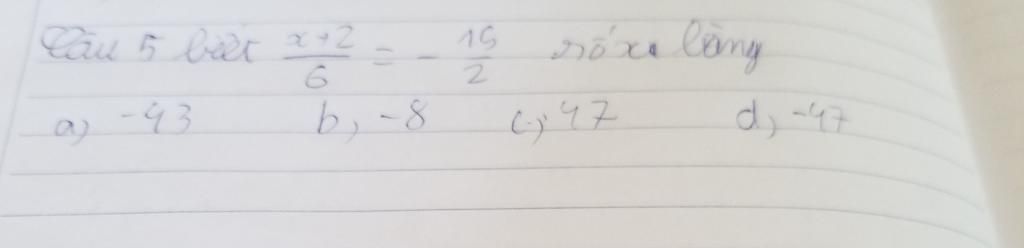 Câu 5 biết x+2/6 = - 15/2 số x bằng
a, -43 b, -8 c, 47 d, -47